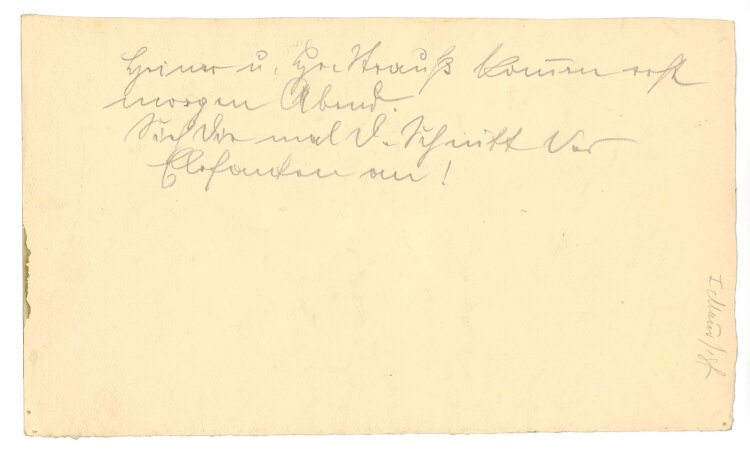 Heiner u. Hr. Strauß kommen erst
morgen Abend.
Sieh Dir mal d. Schnitt der
Elefanten an!